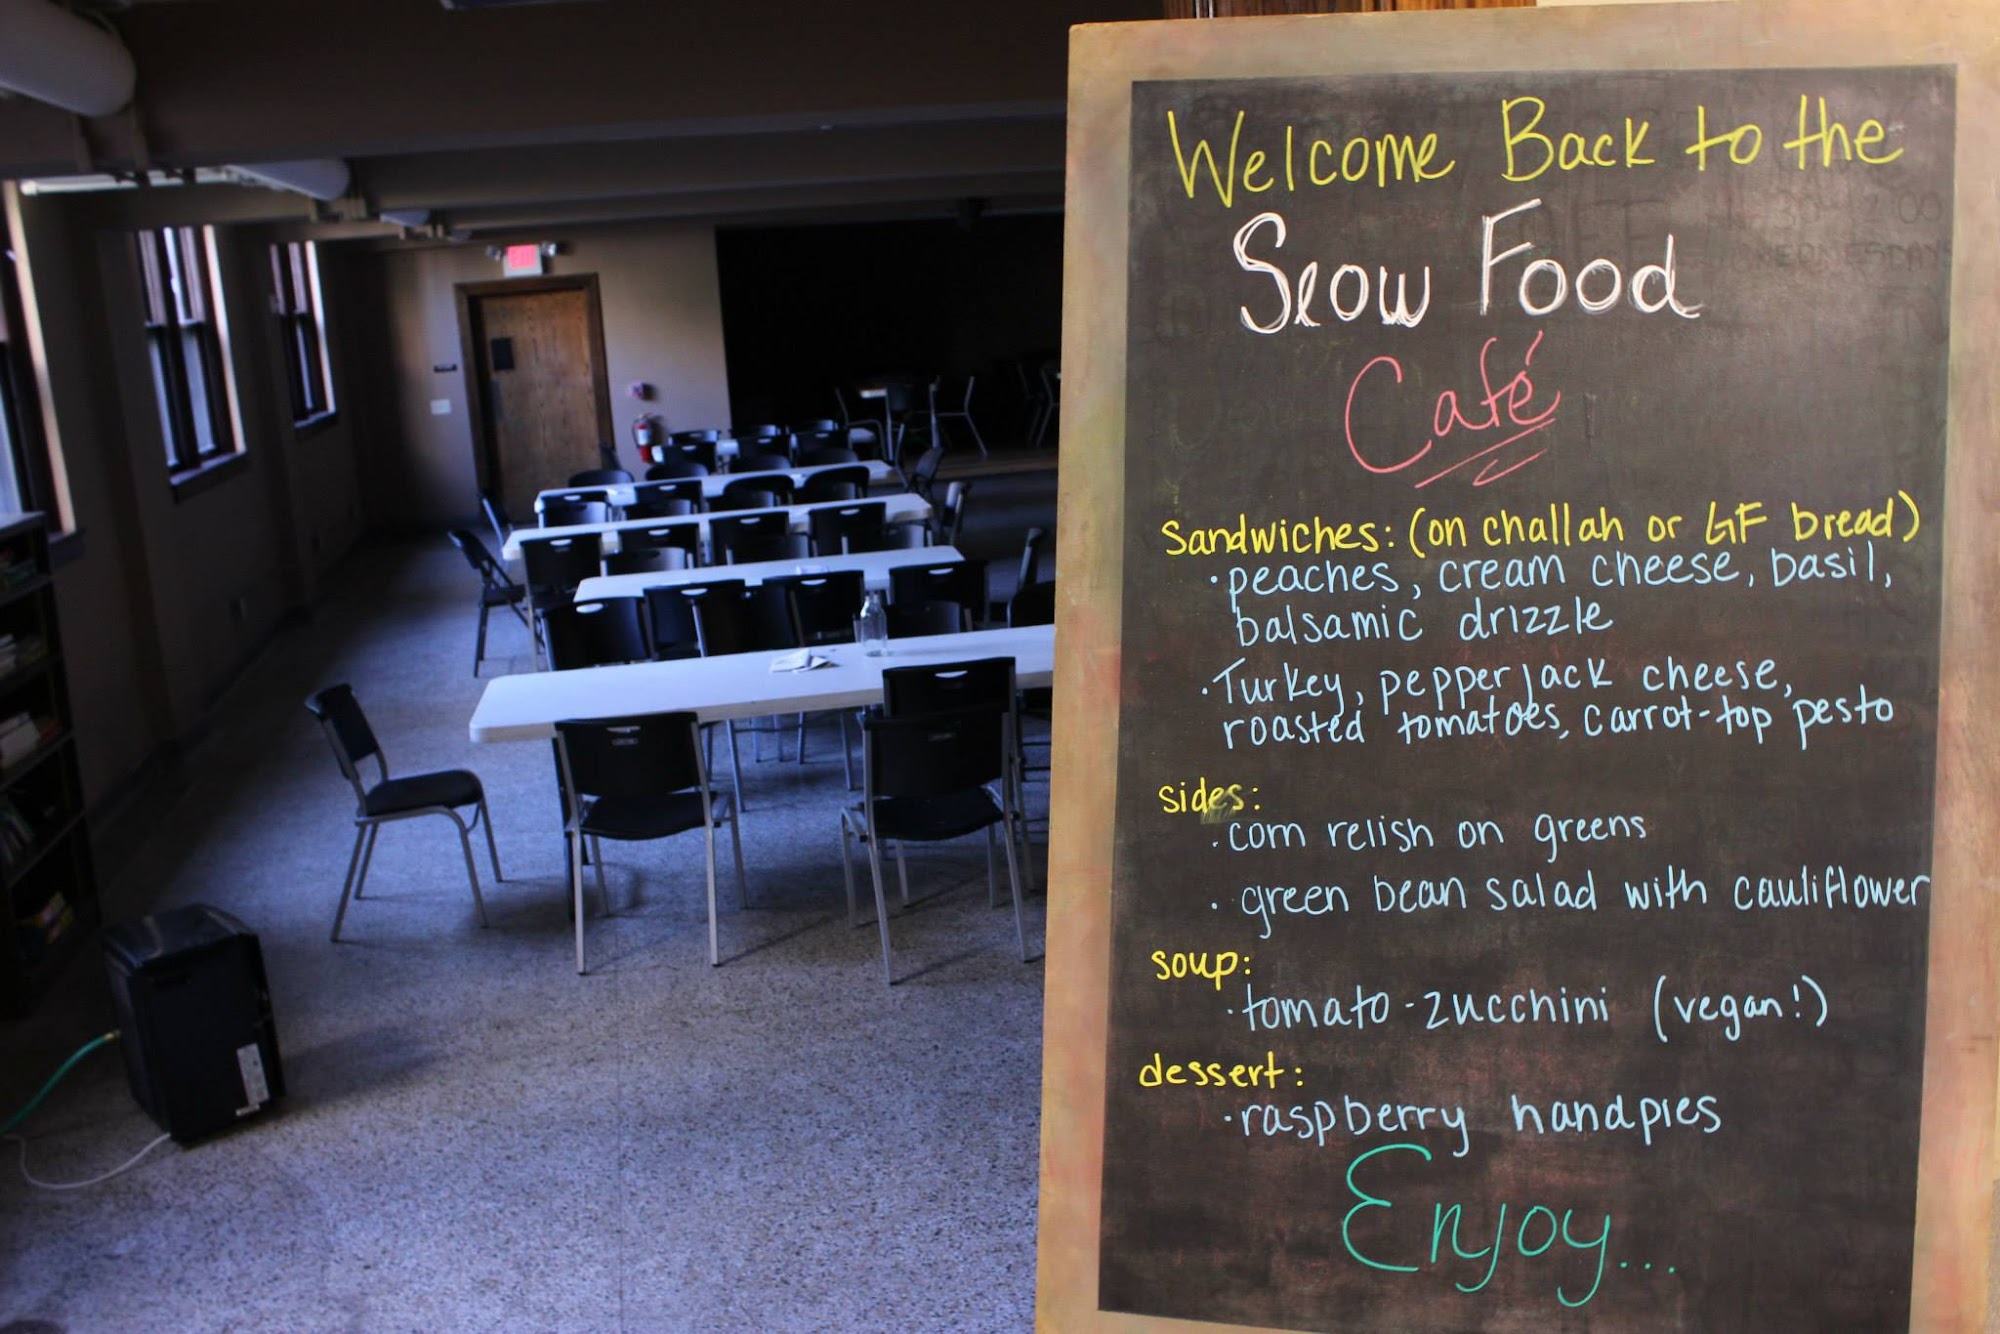 EXIT
Welcome Back to the
Slow Food
Café
Sandwiches: (on challah or GF bread)
• peaches, cream cheese, basil,
balsamic drizzle
• Turkey, pepperjack cheese,
roasted tomatoes, carrot-top pesto
sides:
• corn relish on greens
• green bean salad with cauliflower
soup:
• tomato-zucchini (vegan!)
dessert:
• raspberry handpies
Enjoy...
WEDNESDAYS